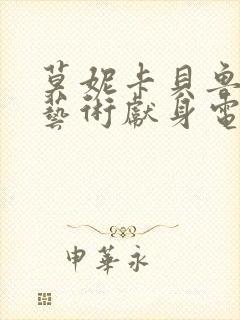 莫妮卡貝魯
藝術獻身電
申華永